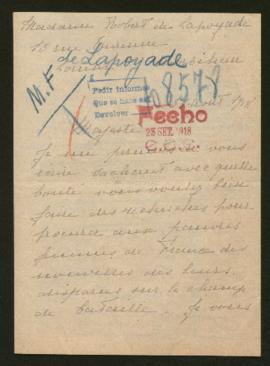 Madame Robert de Lapoyade
13 rue
de Lapoyade
M.F.
8578
Pedir informe
Que se hace en
Devolver
Fecho
23 SET. 1918
Majesté
Je me permets de vous
écrire sachant avec quelle
bonté vous voulez bien
faire des recherches pour
procurer aux pauvres
femmes de France des
nouvelles des leurs,
disparus sur le champ
de bataille. Je vous